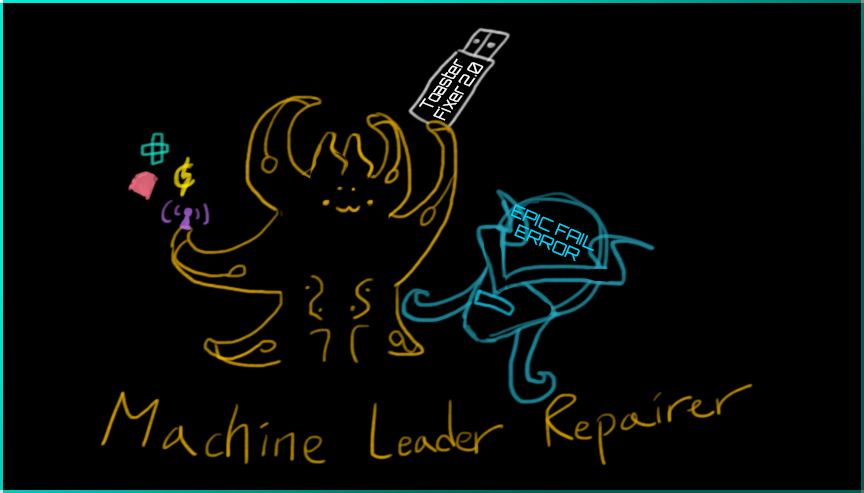 Toaster
Fixer 2.0
EPIC FAIL
ERROR
Machine Leader Repairer